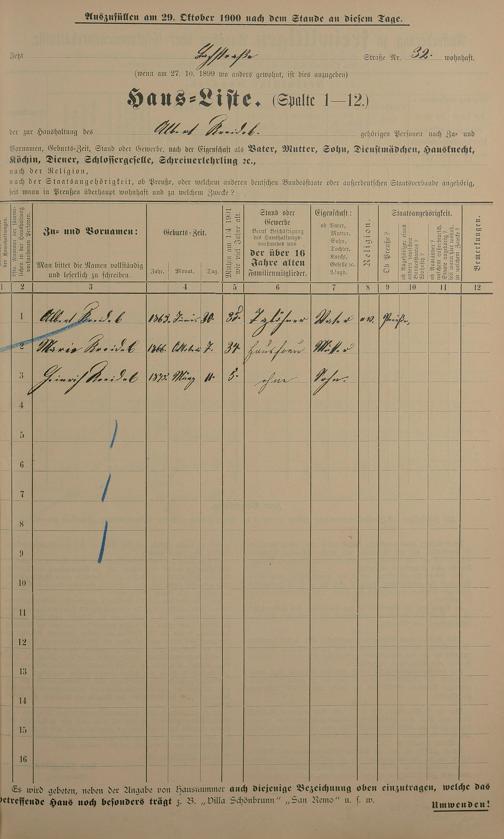 Auszufüllen am 29. Oktober 1900 nach dem Stande an diesem Tage.
Jetzt Straße Nr. 32. wohnhaft.
(wenn am 27. 10. 1899 wo anders gewohnt, ist dies anzugeben)
Haus-Liste. (Spalte 1—12.)
der zur Haushaltung des Albert Kreidel. gehörigen Personen nach Zu- und
Vornamen, Geburts-Zeit, Stand oder Gewerbe, nach der Eigenschaft als Vater, Mutter, Sohn, Dienstmädchen, Hausknecht,
Köchin, Diener, Schlossergeselle, Schreinerlehrling ec.,
nach der Religion,
nach der Staatsangehörigkeit, ob Preuße, oder welchem anderen deutschen Bundesstaate oder außerdeutschen Staatsverbande angehörig,
seit wann in Preußen überhaupt wohnhaft und zu welchem Zwecke?
Zu- und Vornamen:
Man bittet die Namen vollständig
und leserlich zu schreiben.
Geburts-Zeit.
Jahr. Monat. Tag.
Stand oder
Gewerbe
der über 16
Jahre alten
Familienmitglieder.
Eigenschaft:
ob Vater,
Mutter,
Sohn,
Tochter,
Knecht,
Magd,
Geselle ec.
Religion.
Ob Preuße?
Staatsangehörigkeit.
Bemerkungen.
1 2 3 4 5 6 7 8 9 10 11 12
1 Albert Kreidel 1863. Juni 20. Taglöhner Vater ev. Preuße.
2 Maria Kreidel 1866. Oktober 7. 34 Hausfrau Mutter
3 Heinrich Kreidel März 11. 5. ohne Sohn.
4
5
6
7
8
9
10
11
12
13
14
15
16
Es wird gebeten, neben der Angabe von Hausnummer auch diejenige Bezeichnung oben einzutragen, welche das
betreffende Haus noch besonders trägt z. B. „Villa Schönbrunn" „San Remo" u. s. w.
Umwenden!